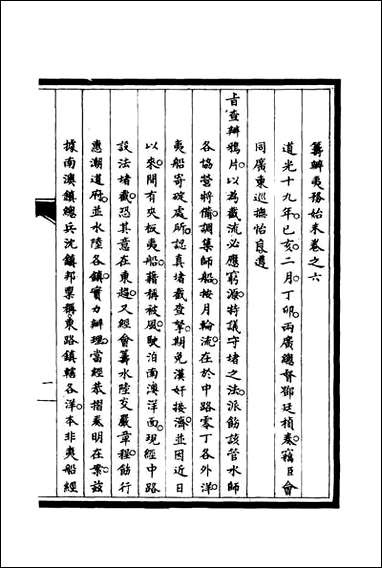 籌辦夷務始末卷之六
道光十九年己亥二月丁卯兩廣總督鄧廷楨奏竊臣會
同廣東巡撫怡良遵
旨查辦鴉片以為截流必應窮源特議守堵之法派飭該管水師
各協營將備調集師船按月輪流在於中路零丁各外洋
夷船寄碇處所認真堵截查拏期免漢奸接濟並因近日
以來間有夾板夷船藉稱被風駛泊南澳洋面現經中路
設法堵截恐其意在東趨又經會籌水陸交嚴章程飭行
惠潮道府並水陸各鎮實力辦理當經恭摺奏明在案茲
據南澳鎮總兵沈鎮邦稟稱東路鎮轄各洋本非夷船經
一